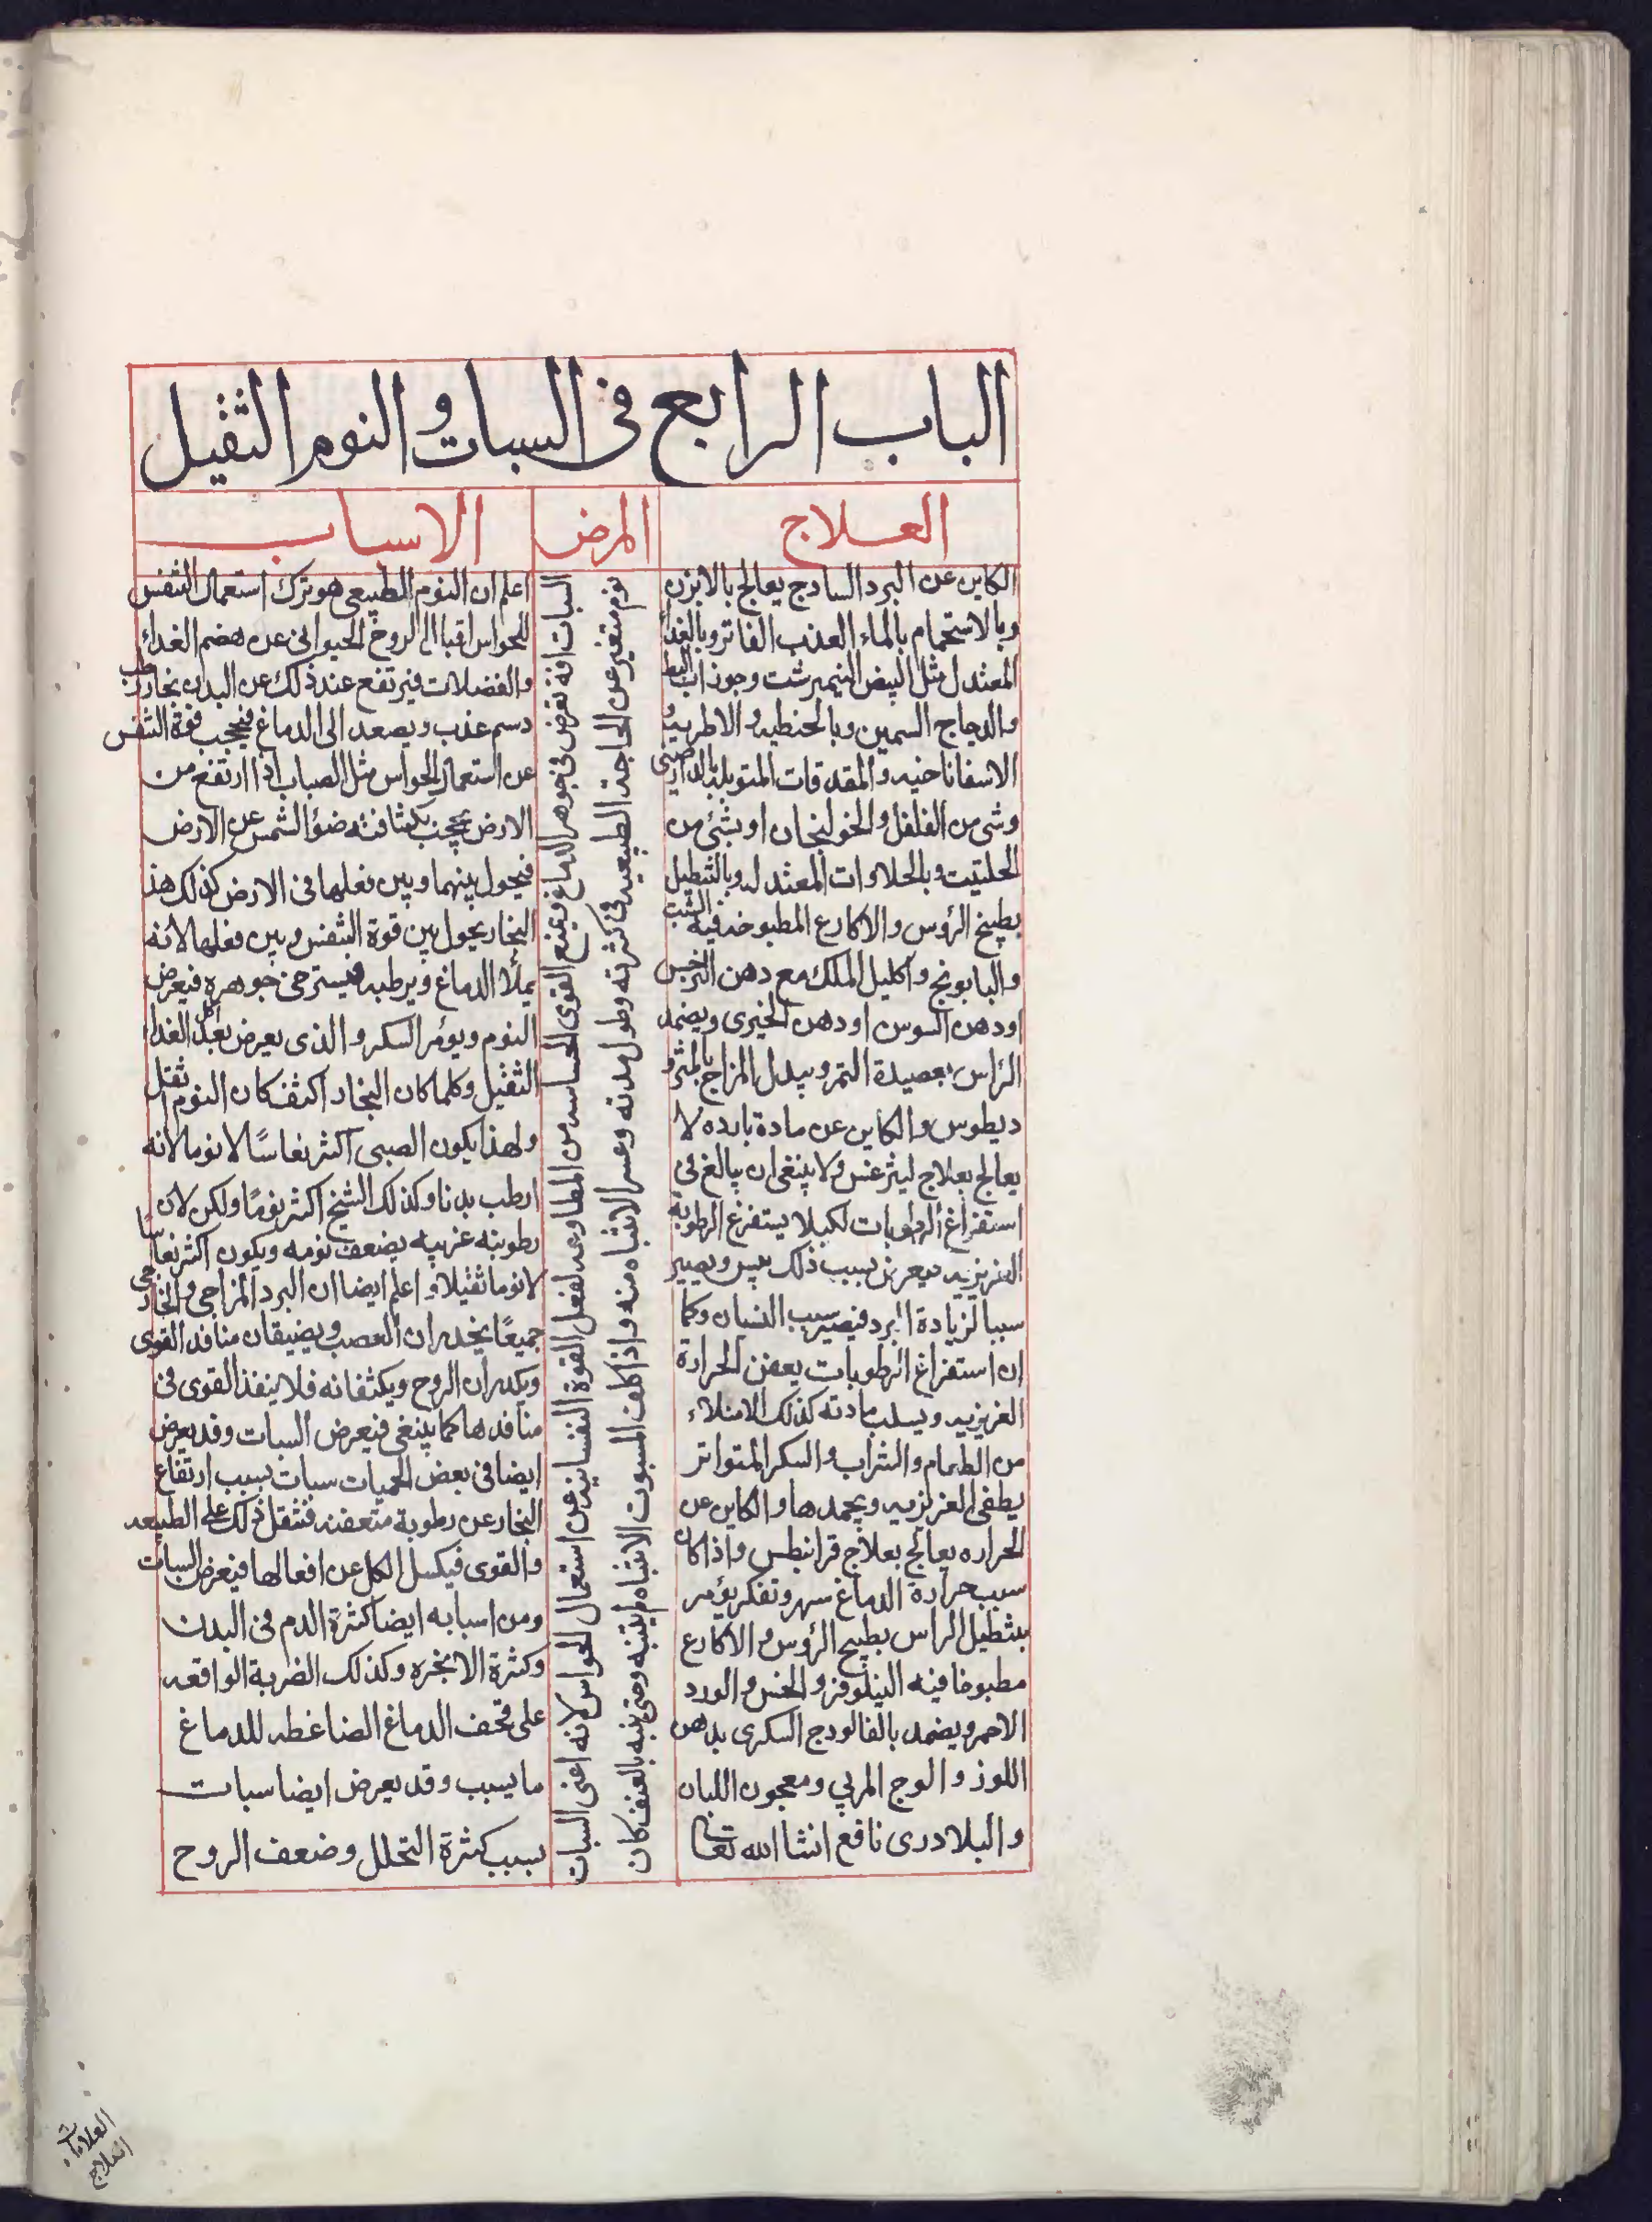 الباب الرابع فى السبات والنوم الثقيل
العلاج
المرض
الاسباب
الكاين عن البرد السادج يعالج بالابزن
وبالاستحمام بالماء العذب الفاتر وبالغداء
المعتدل مثل البيض النيمبرشت وجوذاب البط
والدجاج السمين وبالحنطيه والاطريه و
الاسفاناخيه والمقدقات المتوبله بالدارصينى
وشى من الفلفل والخولنجان او بشئ من
الحلتيت وبالحلاوات المعتدله وبالتنطيل
بطبيخ الرؤس والاكارع المطبوخه فيه الشبت
والبابونج واكليل الملك مع دهن النرجس
او دهن السوس او دهن الخيرى ويضمد
الراس بعصيدة التمر ويبدل المزاج بالمثرو
ديطوس والكاين عن مادة بارده لا
يعالج بعلاج ليثرغس ولا ينبغى ان يبالغ فى
استفراغ الرطوبات لكيلا يستفرغ الرطوبة
الغريزيه فيعرض بسبب ذلك يبس ويصير
سببا لزيادة البرد فيصير سبب النسيان وكما
ان استفراغ الرطوبات يعفن الحرارة
الغريزيه ويسلب مادته كذلك الامتلاء
من الطعام والشراب والسكر المتواتر
يطفى الغريزيه ويجمدها والكاين عن
الحراره يعالج بعلاج قرانيطس واذا كان
سبب حرارة الدماغ سهر وتفكر يؤمر
بتنطيل الراس بطبيخ الرؤس والاكارع
مطبوخا فيه النيلوفر والخس والورد
الاحمر ويضمد بالفالودج السكرى بدهن
اللوز والوج المربي ومعجون اللبان
والبلادرى نافع انشا الله تعالى
السبات افة تعرض فى جوهر الدماغ ويمنع القوى الحساسه من المطاوعه لفعل القوة النفسانيه عن استعمال الحواس لانه اعنى السبات
نوم متغير عن الحاجة الطبيعيه فى كثرته وطول مدته وعسر الانتباه منه واذا كلف المسبوت الانتباه لم ينتبه ومتى نبه بالعنف كان
اعلم ان النوم الطبيعى هو ترك استعمال النفس
للحواس اقبال الروح الحيوانى عن هضم الغداء
والفضلات فيرتفع عند ذلك عن البدن بخار رطب
دسم عذب ويصعد الى الدماغ فيحجب قوة النفس
عن استعمال الحواس مثل الضباب اذا ارتفع من
الارض يحجب بكثافته ضؤ الشمس عن الارض
فيحول بينهما وبين فعلها فى الارض كذلك هذ
البخار يحول بين قوة النفس وبين فعلها لانه
يملأ الدماغ ويرطبه فيسترخى جوهره فيعرض
النوم ويؤثر السكر والذى يعرض بعد اكل الغداء
الثقيل وكلما كان البخار اكثف كان النوم اثقل
ولهذا يكون الصبى اكثر نعاسًا لا نوما لانه
ارطب بدنا وكذلك الشيخ اكثر نومًا ولكن لان
رطوبته غريبه يضعف نومه ويكون اكثر نعاسا
لا نوما ثقيلا واعلم ايضا ان البرد المزاجى والخارجى
جميعًا يخدران العصب ويضيقان منافد القوى
ويكدران الروح ويكثفانه فلا ينفذ القوى فى
منافدها كما ينبغى فيعرض السبات وقد يعرض
ايضا فى بعض الحميات سبات بسبب ارتفاع
البخار عن رطوبة متعفنه فتثقل ذلك على الطبيعه
والقوى فيكسل الكل عن افعالها فيعرض السبات
ومن اسبابه ايضا كثرة الدم فى البدن
وكثرة الابخره وكذلك الضربة الواقعه
على قحف الدماغ الضاغطه للدماغ
ما يسبب وقد يعرض ايضا سبات
بسبب كثرة التحلل وضعف الروح
العلامات
العلاج